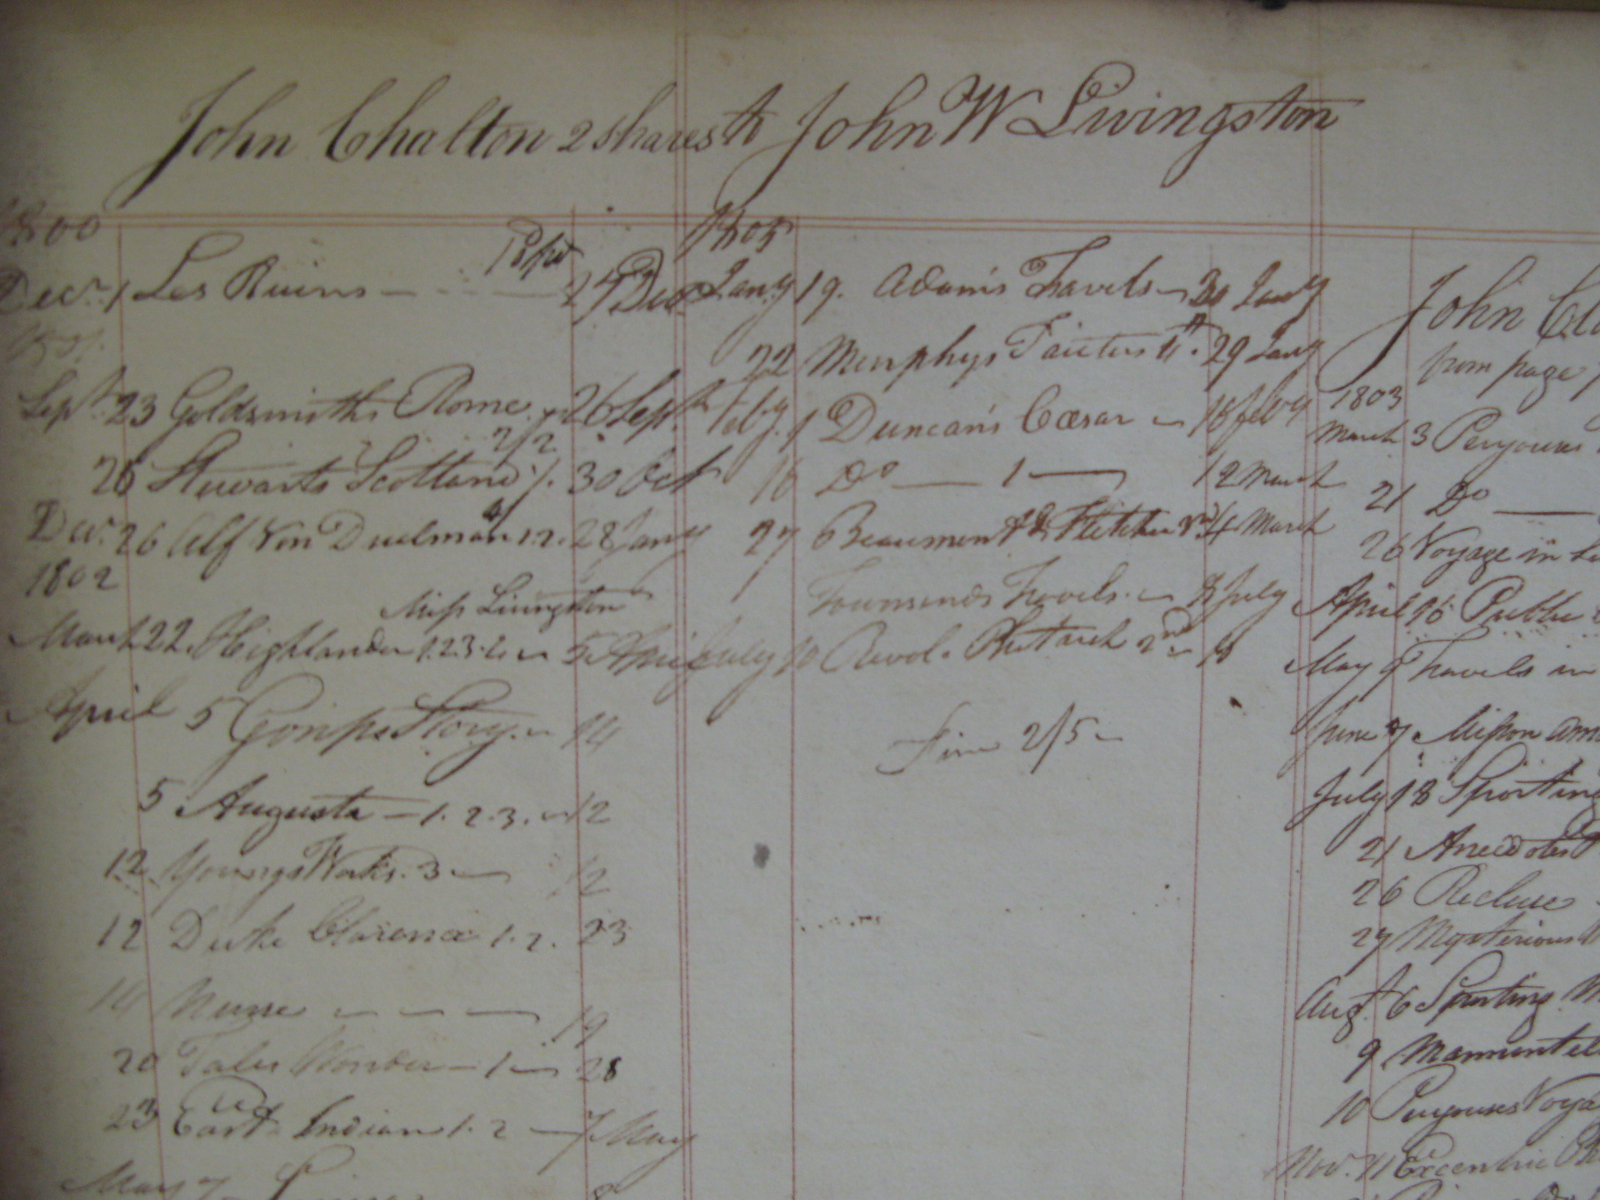 John Chalton 2 shares to John W Livingston
1800
Decr. 1 Les Ruins 24 Decr
Sept. 23 Goldsmiths Rome 26 Sept.
2/2
26 Stewarts Scotland 1. 30 Oct
Decr. 26 Alf Von Duelman 1.2. 28 Jany
1802
Miss Livingston
March 22. Highlander 1.2.3.4 5 April
April 5 Gossips Story 14
5 Augusta — 1. 2. 3. 12
12 Youngs Works. 3 12
12 Duke Clarence 1. 2. 23
14 Nurse 19
20 Tales Wonder — 1 28
23 East Indian 1. 2 — 7 May
May 7
1805
Jany 19. Adams Travels 31 Jany
22 Murphys Tacitus 4. 29 Jany
Feby. 1 Duncan's Cæsar 16 feby
16 Do — 1 — 12 March
27 Beaumont & Fletcher 14 March
Townsends Travels. 8 July
July 10 Revol. Plutarch 2nd 18
Fine 2/5
John
from page
1803
March 3 Perouses
21 Do
26 Voyage in
April 16 Public
May 9 Travels in
June 7 Mission
July 18 Sporting
21 Anecdotes
26 Recluse
27 Mysterious
Augt. 6 Sporting M
9 Marmontel
10 Perouses Voya
Nov. 11 Eccentric